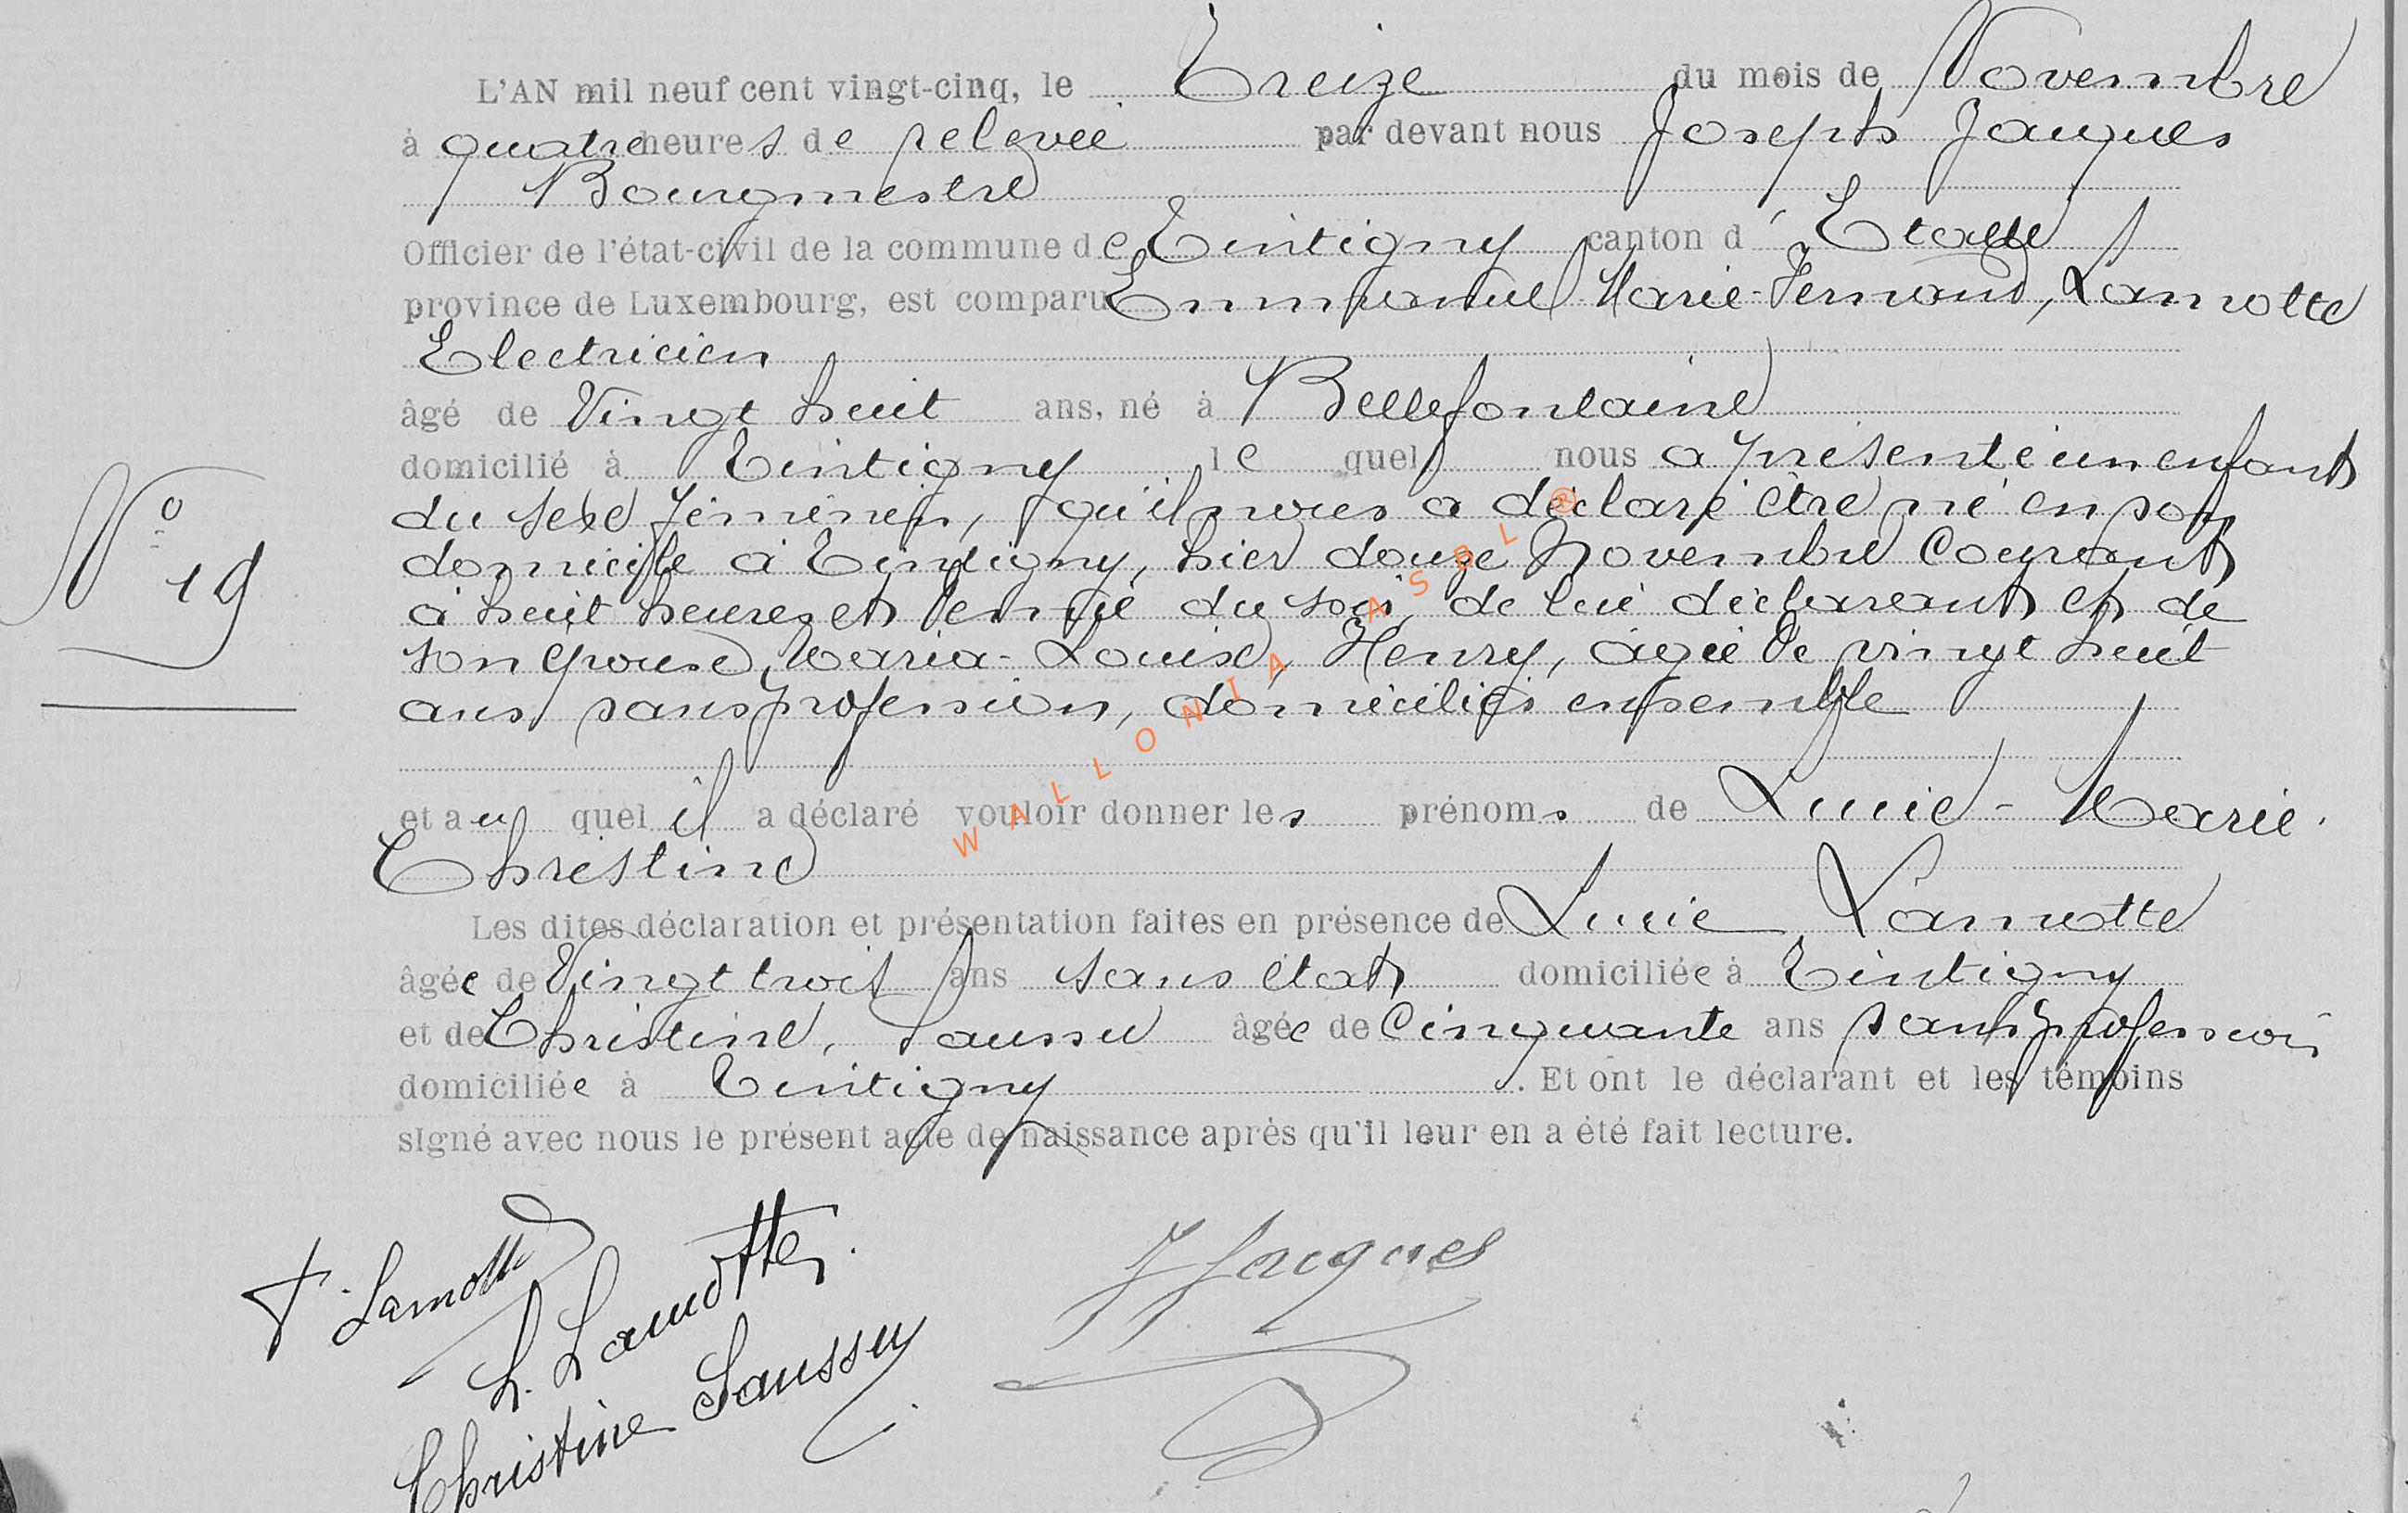 L'AN mil neuf cent vingt-cinq, le Treize du mois de Novembre
à quatre heures de relevée par devant nous Joseph Jacques
Bourgmestre
Officier de l'état-civil de la commune de Tintigny canton d'Etalle
province de Luxembourg, est comparu Emmanuel Marie-Fernand, Lamotte
Electricien
âgé de Vingt huit ans, né à Bellefontaine
domicilié à Tintigny le quel nous a présenté un enfant
du sexe féminin, qu'il nous a déclaré être né en son
domicile à Tintigny, hier douze Novembre courant
N° 19
à huit heures et demie du soir, de lui déclarant et de
son épouse, Maria-Louise, Henry, âgée de vingt huit
ans, sans profession, domiciliés ensemble
et au quel il a déclaré vouloir donner les prénoms de Lucie-Marie
Christine
Les dites déclaration et présentation faites en présence de Lucie Lamotte
âgée de Vingt trois ans sans état domiciliée à Tintigny
et de Christine, Saussu âgée de Cinquante ans sans profession
domiciliée à Tintigny. Et ont le déclarant et les témoins
signé avec nous le présent acte de naissance après qu'il leur en a été fait lecture.
F. Lamotte
L. Lamotte.
Christine Saussu
J Jacques
WALLONIA ASBL ®